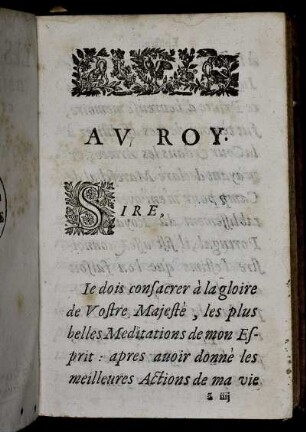 AV ROY.
SIRE,
Ie dois consacrer à la gloire
de Vostre Majesté, les plus
belles Meditations de mon Es-
prit : apres auoir donné les
meilleures Actions de ma vie
ã iij